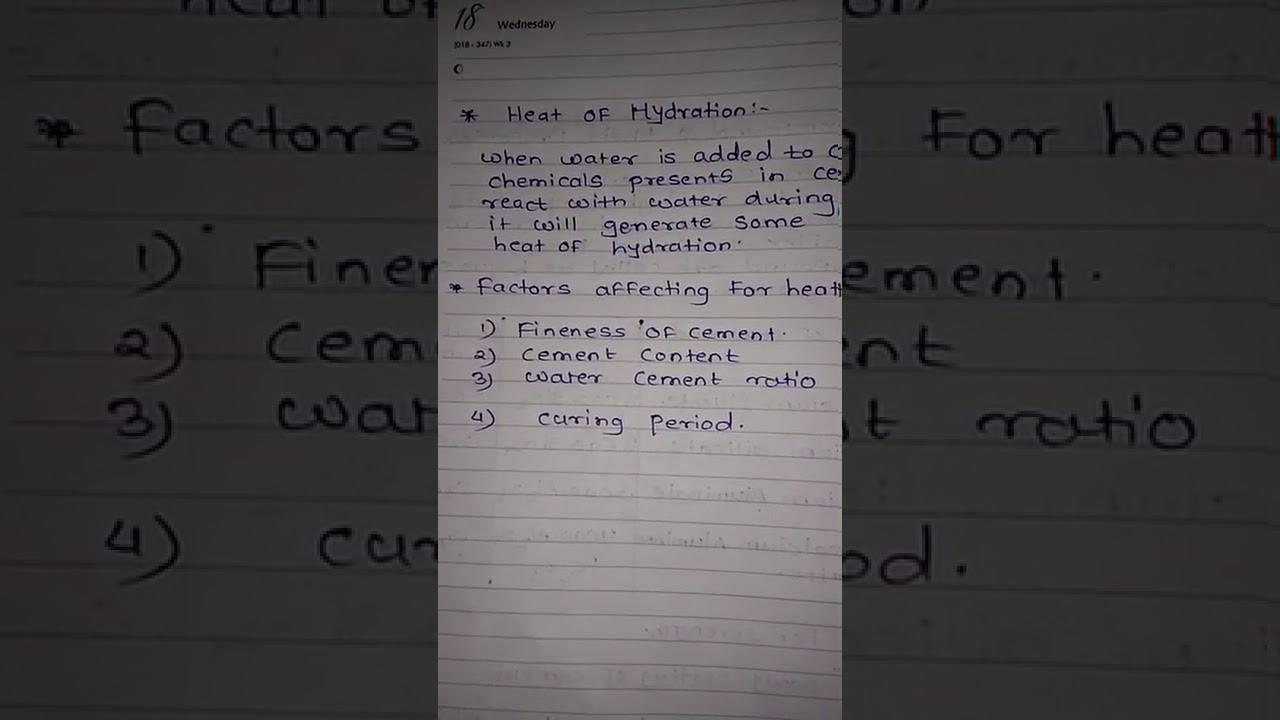 18 Wednesday
(018 - 347) Wk 3
* Heat of Hydration:-
when water is added to
chemicals presents in
react with water during
it will generate some
heat of hydration.
* Factors affecting For heat
1) Fineness of cement.
2) cement content
3) water cement ratio
4) curing period.